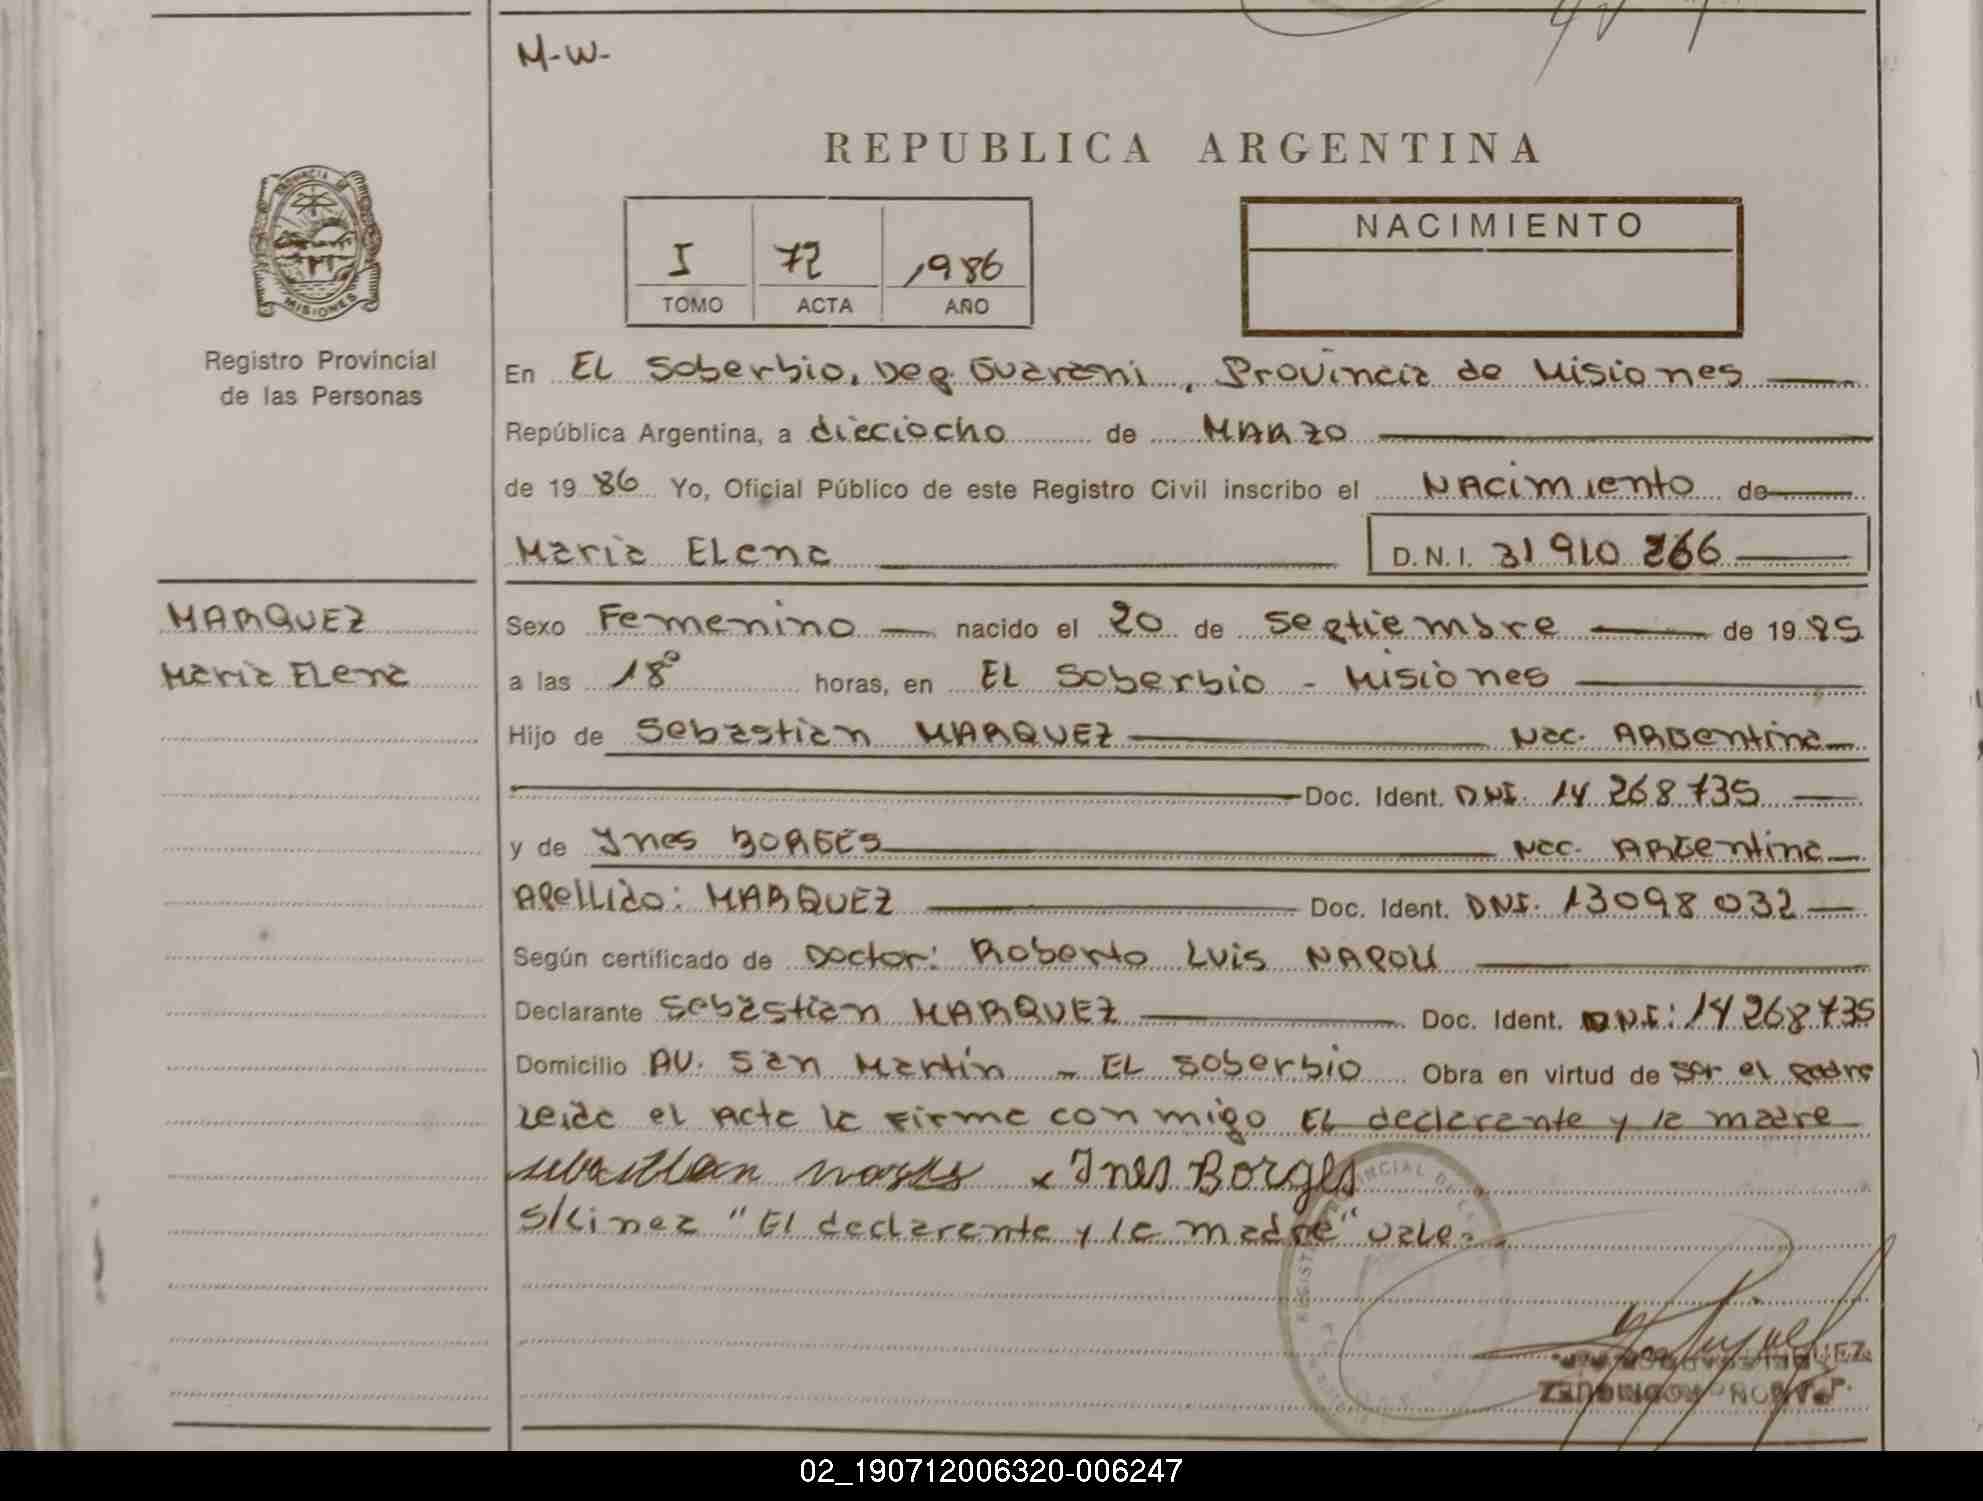 M-W-
REPUBLICA ARGENTINA
PROVINCIA DE
MISIONES
Registro Provincial
de las Personas
I 72 1986
TOMO ACTA AÑO
NACIMIENTO
En EL Soberbio, Dep. Guarani, Provincia de Misiones
República Argentina, a dieciocho de MARZO
de 1986 Yo, Oficial Público de este Registro Civil inscribo el NACimiento de
Maria ELena D.N.I. 31 910 266
MARQUEZ
Maria ELena
Sexo Femenino nacido el 20 de Septiembre de 1985
a las 18º horas, en EL Soberbio - Misiones
Hijo de Sebastian MARQUEZ Nac. ARGentina
Doc. Ident. DNI. 14 268 735
y de Ines BORGES Nac. ARGentina
Apellido: MARQUEZ Doc. Ident. DNI. 13098032
Según certificado de Doctor: Roberto Luis NAPOLI
Declarante Sebastian MARQUEZ Doc. Ident. DNI: 14 268 735
Domicilio AV. San Martin - EL Soberbio Obra en virtud de ser el padre
Leida el Acta la Firma con migo EL declarante y la madre
x Ines Borges
S/Linea "El declarante y la madre" vale.
02_190712006320-006247